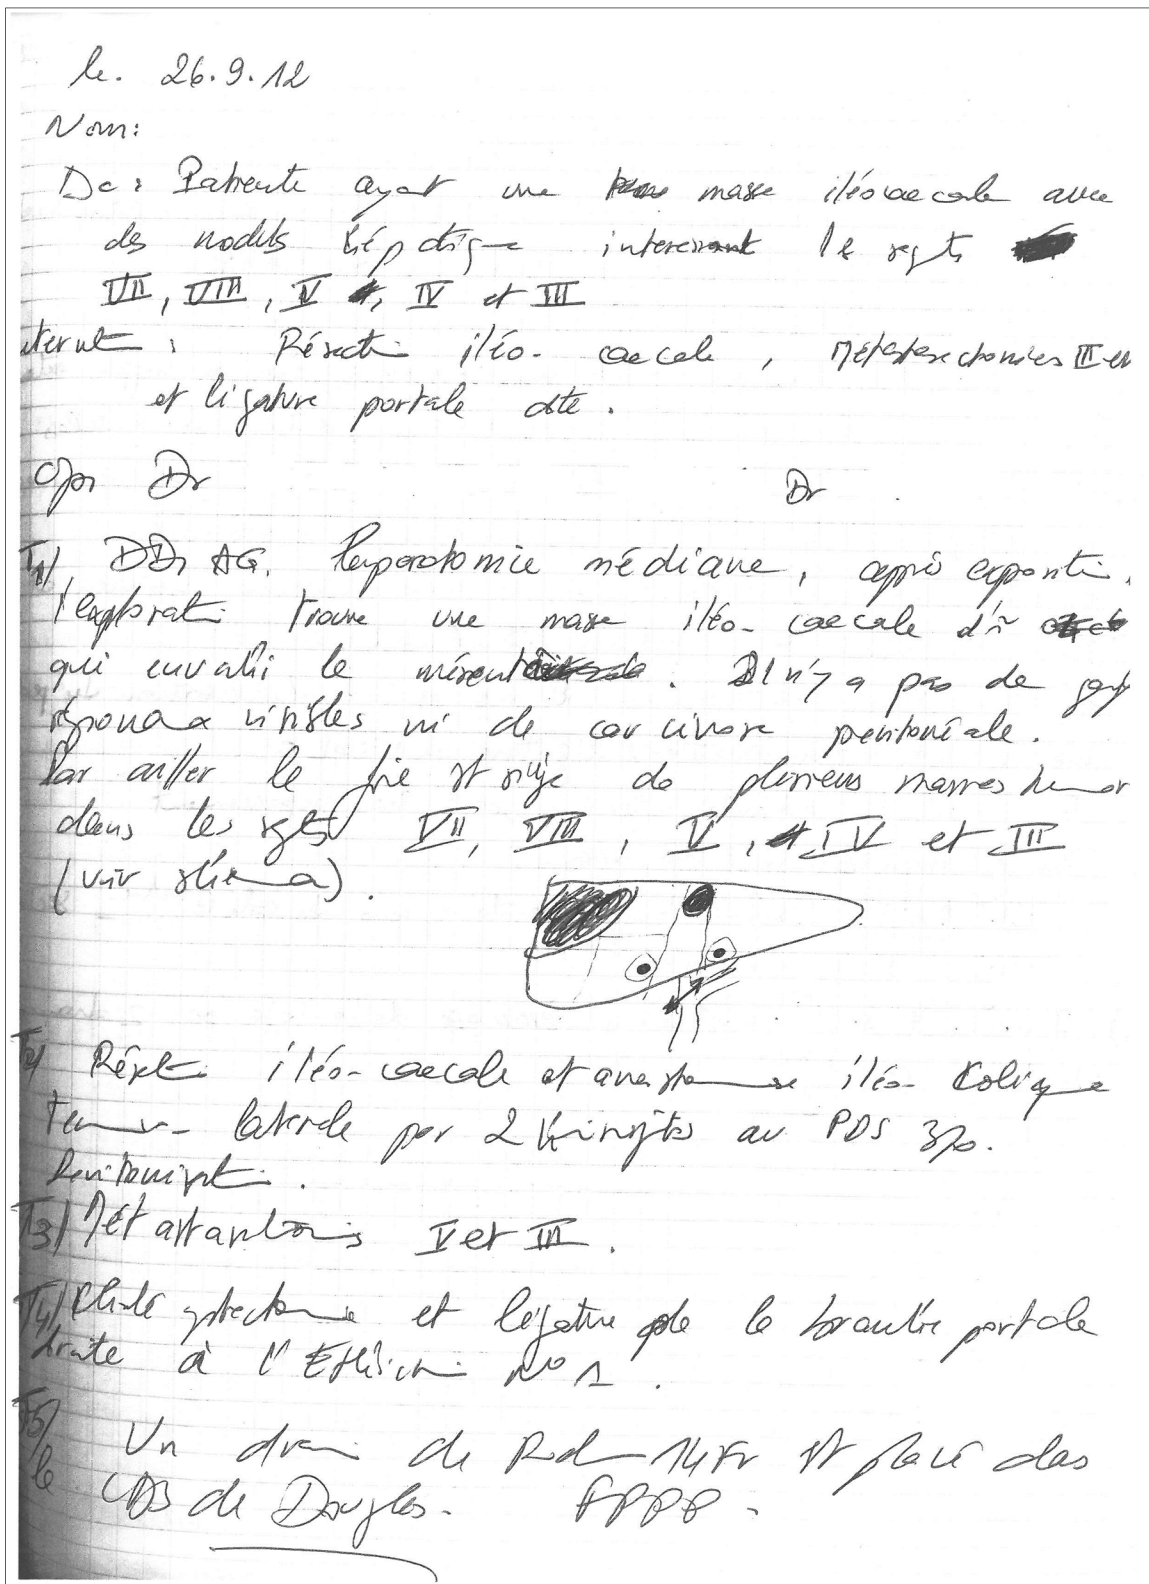 le. 26.9.12
Nom:
Dc: Patiente ayant une masse iléocaecale avec
des nodules hépatiques interessant les sgts
VII, VIII, V, IV et III
: Résection iléo-caecale, Métastasectomies III et
et ligature portale dte.
Op: Dr Dr
T1/ DD, AG. laparotomie médiane, après exposition.
l'exploration trouve une masse iléo-caecale
qui envahi le mésentère. Il n'y a pas de
visibles ni de carcinose péritonéale.
Par ailler le foie st siège de plusieurs masses
dans les sgts VII, VIII, V, IV et III
(voir schéma).
T2/ Résection iléo-caecale et anastomose iléo-colique
latérale par 2 au PDS 3/0.
Péritonisation.
T3/ Métastasectomies V et III.
T4/ Cholécystectomie et ligature de la branche portale
droite à l'Ethicon N° 1.
T5/ Un drain de Redon 14 Fr st placé dans
le CDS de Douglas. FPPP.